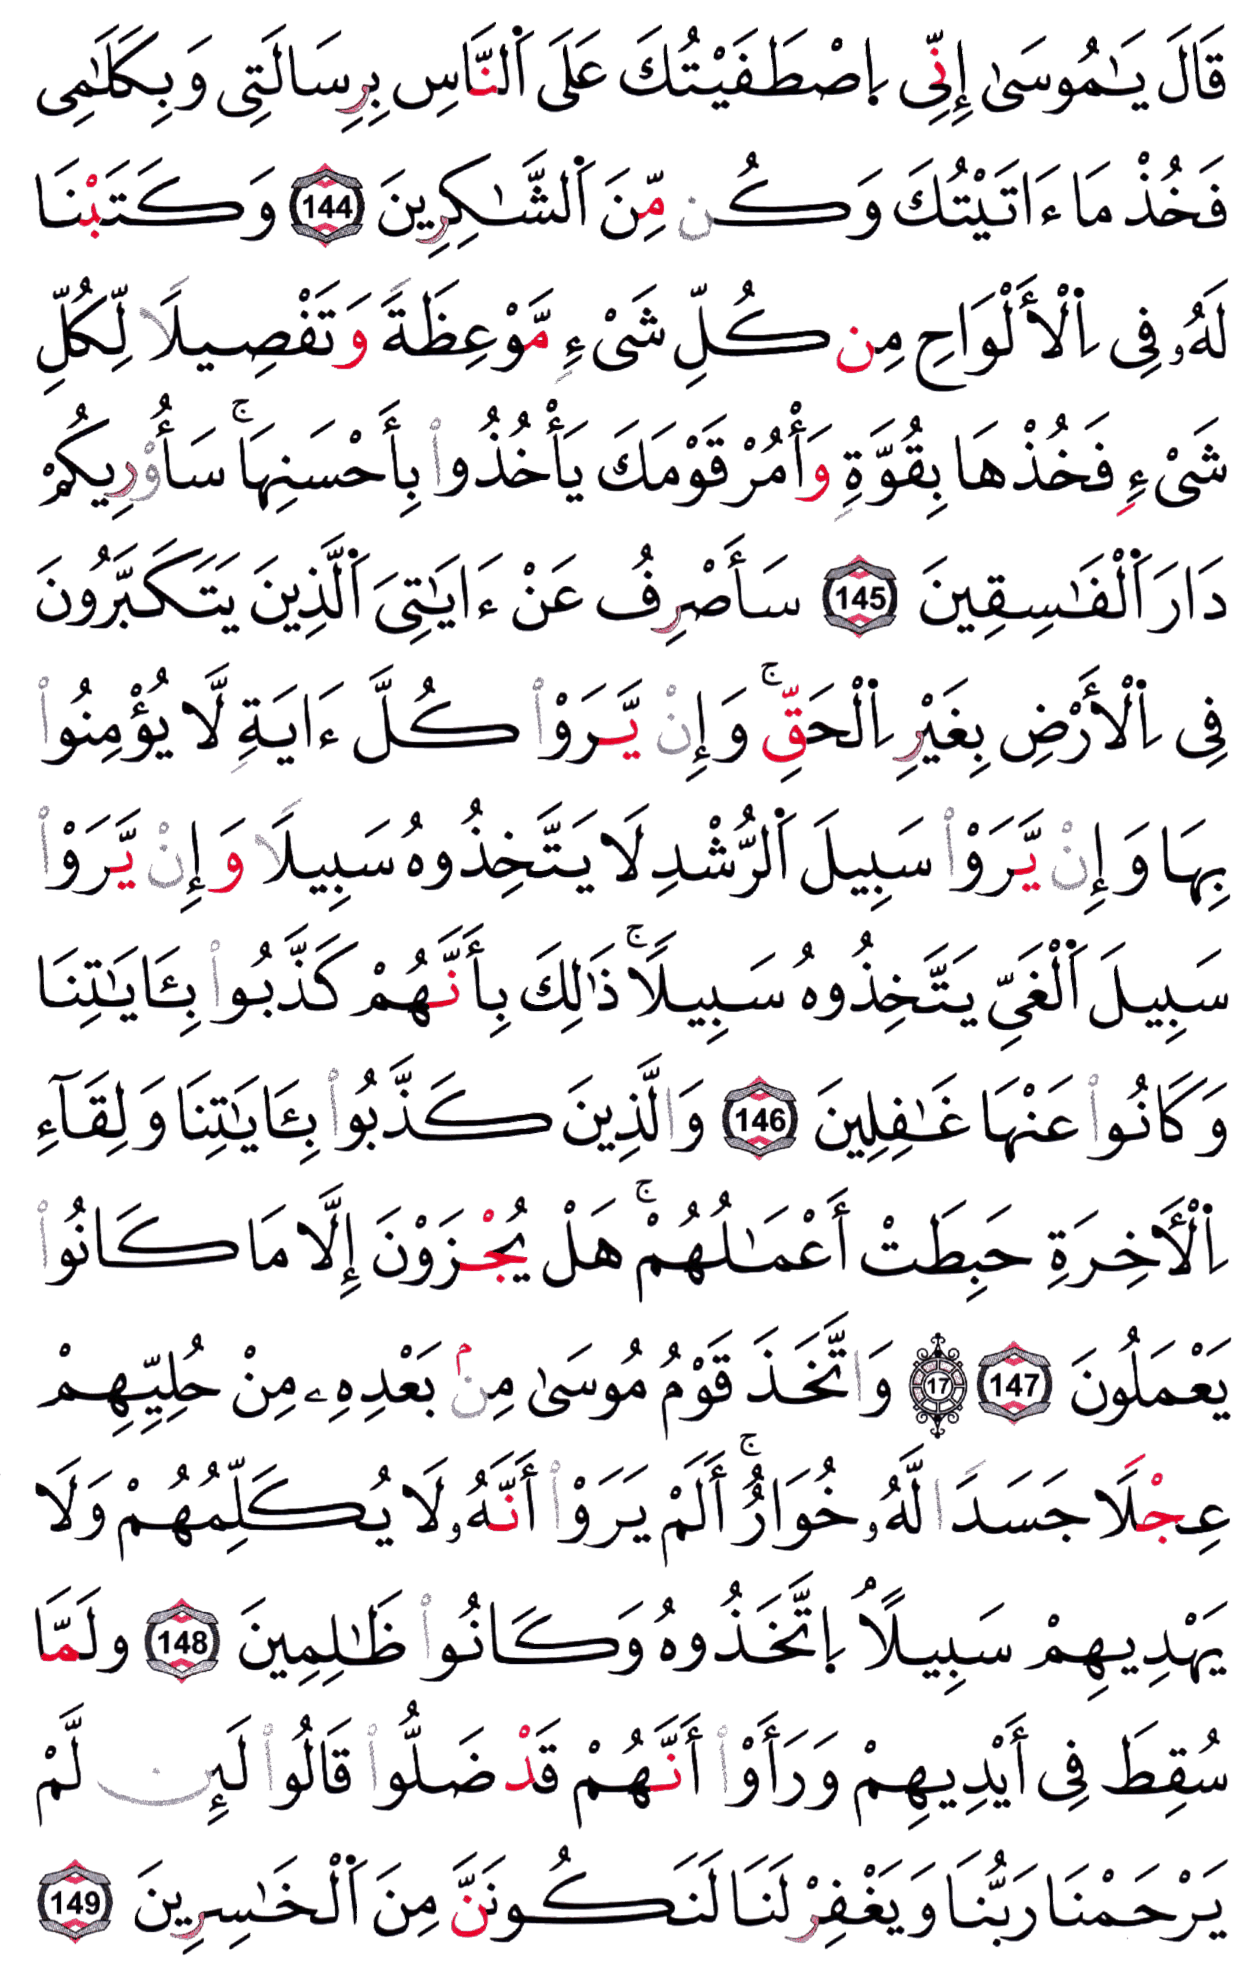 قَالَ يَـٰمُوسَىٰ إِنِّى اِ۪صْطَفَيْتُكَ عَلَى اَ۬لنَّاسِ بِرِسَالَتِى وَبِكَلَـٰمِى
فَخُذْ مَا ءَاتَيْتُكَ وَكُن مِّنَ اَ۬لشَّـٰكِرِينَ 144 وَكَتَبْنَا
لَهُۥ فِى اِ۬لْأَلْوَاحِ مِن كُلِّ شَىْءٍ مَّوْعِظَةً وَتَفْصِيلًا لِّكُلِّ
شَىْءٍ فَخُذْهَا بِقُوَّةٍ وَأْمُرْ قَوْمَكَ يَأْخُذُواْ بِأَحْسَنِهَاۚ سَأُوْرِيكُمْ
دَارَ اَ۬لْفَـٰسِقِينَ 145 سَأَصْرِفُ عَنْ ءَايَـٰتِىَ اَ۬لَّذِينَ يَتَكَبَّرُونَ
فِى اِ۬لْأَرْضِ بِغَيْرِ اِ۬لْحَقِّۚ وَإِنْ يَّرَوْاْ كُلَّ ءَايَةٍ لَّا يُؤْمِنُواْ
بِهَا وَإِنْ يَّرَوْاْ سَبِيلَ اَ۬لرُّشْدِ لَا يَتَّخِذُوهُ سَبِيلًا وَإِنْ يَّرَوْاْ
سَبِيلَ اَ۬لْغَىِّ يَتَّخِذُوهُ سَبِيلًاۚ ذَٰلِكَ بِأَنَّهُمْ كَذَّبُواْ بِـَٔايَـٰتِنَا
وَكَانُواْ عَنْهَا غَـٰفِلِينَ 146 وَالَّذِينَ كَذَّبُواْ بِـَٔايَـٰتِنَا وَلِقَآءِ
اِ۬لْأَخِرَةِ حَبِطَتْ أَعْمَـٰلُهُمْۚ هَلْ يُجْزَوْنَ إِلَّا مَا كَانُواْ
يَعْمَلُونَ 147 17 وَاتَّخَذَ قَوْمُ مُوسَىٰ مِنۢ بَعْدِهِۦ مِنْ حُلِيِّهِمْ
عِجْلًا جَسَدًا لَّهُۥ خُوَارٌۚ أَلَمْ يَرَوْاْ أَنَّهُۥ لَا يُكَلِّمُهُمْ وَلَا
يَهْدِيهِمْ سَبِيلًا اُ۪تَّخَذُوهُ وَكَانُواْ ظَـٰلِمِينَ 148 ولَمَّا
سُقِطَ فِى أَيْدِيهِمْ وَرَأَوْاْ أَنَّهُمْ قَدْ ضَلُّواْ قَالُواْ لَئِن لَّمْ
يَرْحَمْنَا رَبُّنَا وَيَغْفِرْ لَنَا لَنَكُونَنَّ مِنَ اَ۬لْخَـٰسِرِينَ 149